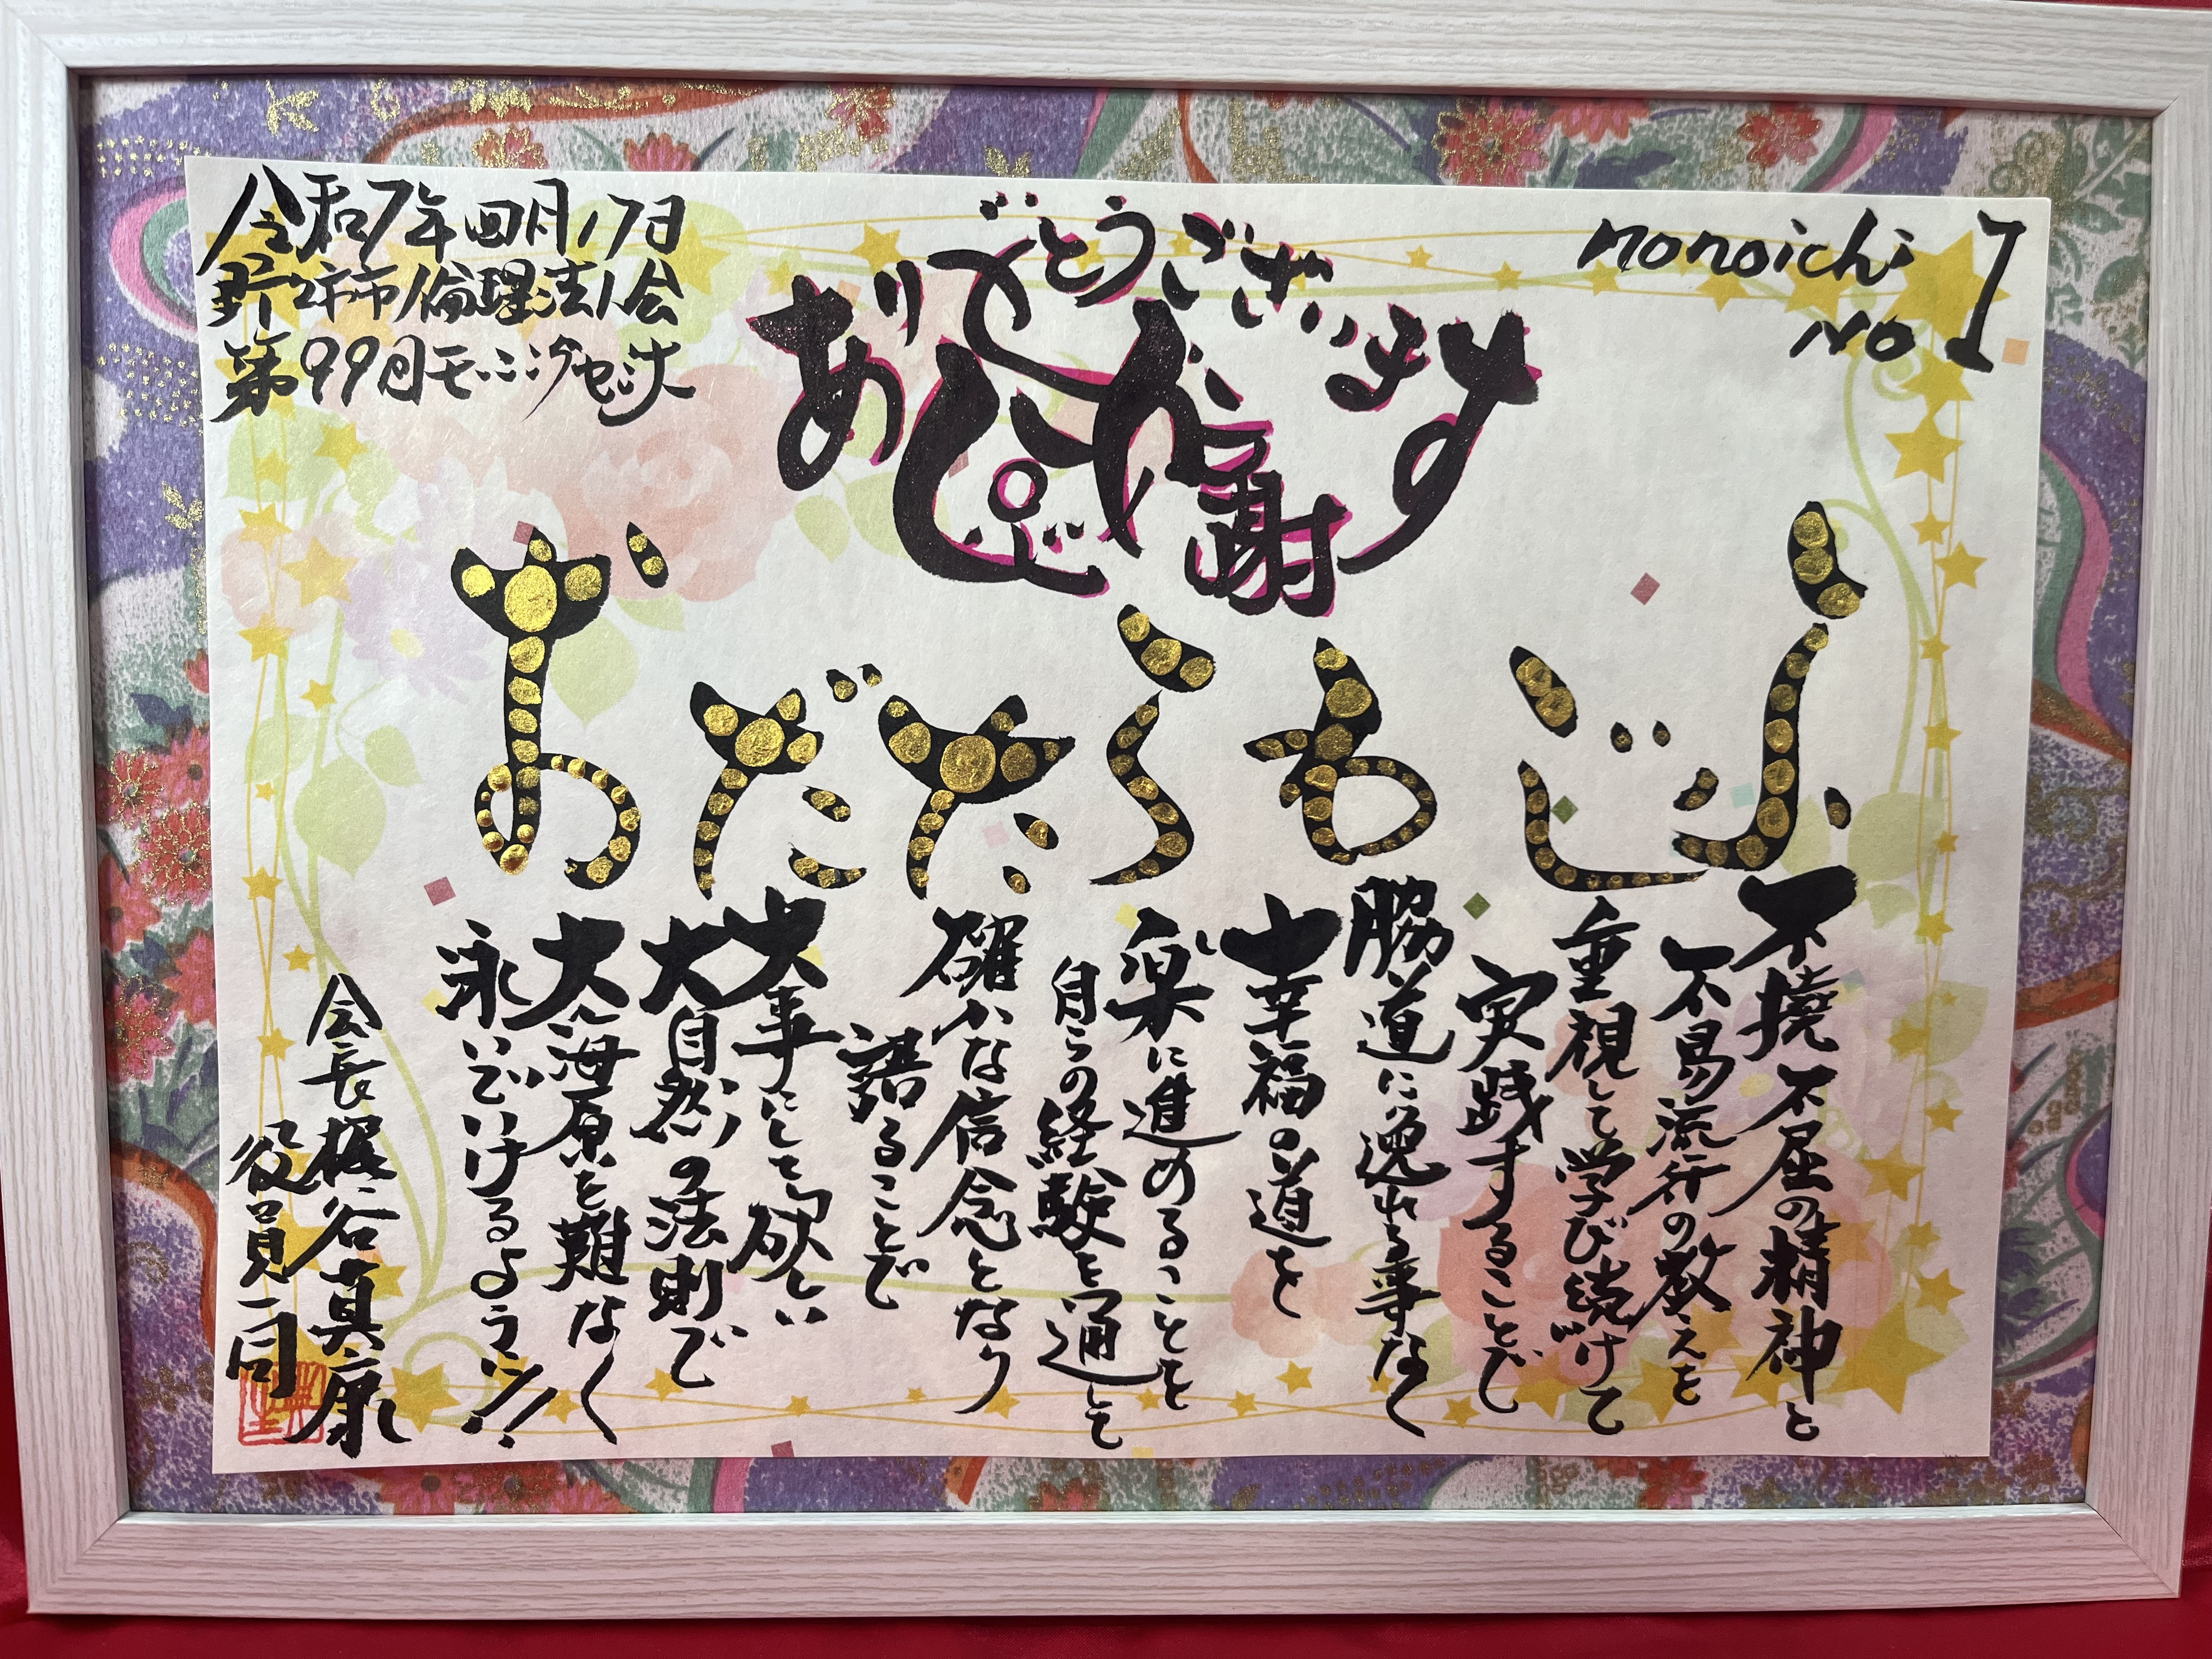 令和7年四月17日
野々市市倫理法人会
第99回モーニングセミナー
ありがとうございます
感謝
nonoichi
NO 1
ふじわらただお
不撓不屈の精神と
不易流行の教えを
重視して学び続けて
実践することで
脇道に逸れる事なく
幸福の道を
楽に進めることを
自らの経験を通して
確かな信念となり
語ることで
大事にして欲しい
大自然の法則で
大海原を難なく
泳いでいけるよう!!
会長 梶谷真康
役員一同